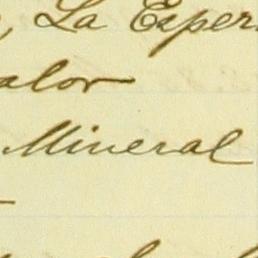 , La Exper
alor
Mineral